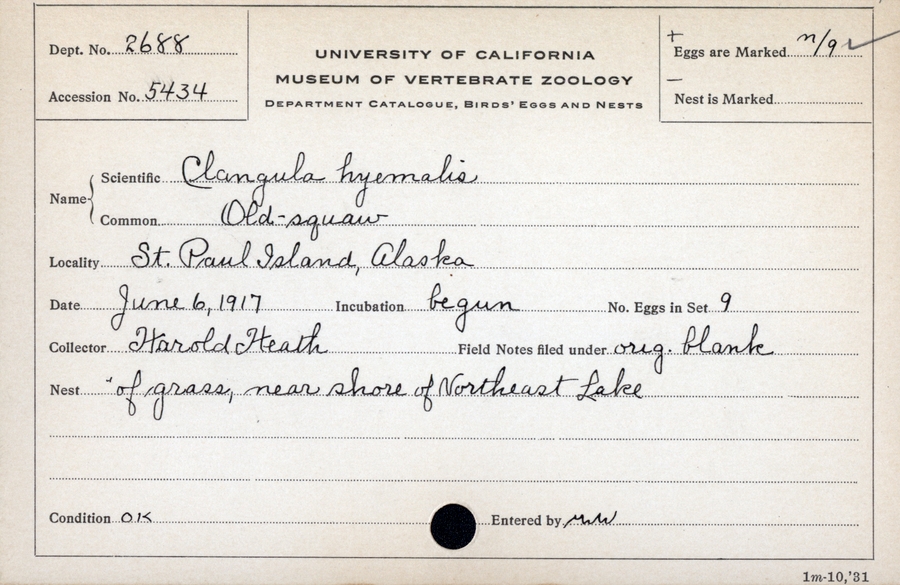 Dept. No. 2688
Accession No. 5434
UNIVERSITY OF CALIFORNIA
MUSEUM OF VERTEBRATE ZOOLOGY
DEPARTMENT CATALOGUE, BIRDS' EGGS AND NESTS
+
Eggs are Marked n/9 ✓
—
Nest is Marked
Name { Scientific Clangula hyemalis
Common Old-squaw
Locality St. Paul Island, Alaska
Date June 6, 1917 Incubation begun No. Eggs in Set 9
Collector Harold Heath Field Notes filed under orig. blank
Nest "of grass, near shore of Northeast Lake
Condition OK Entered by
1m-10,'31